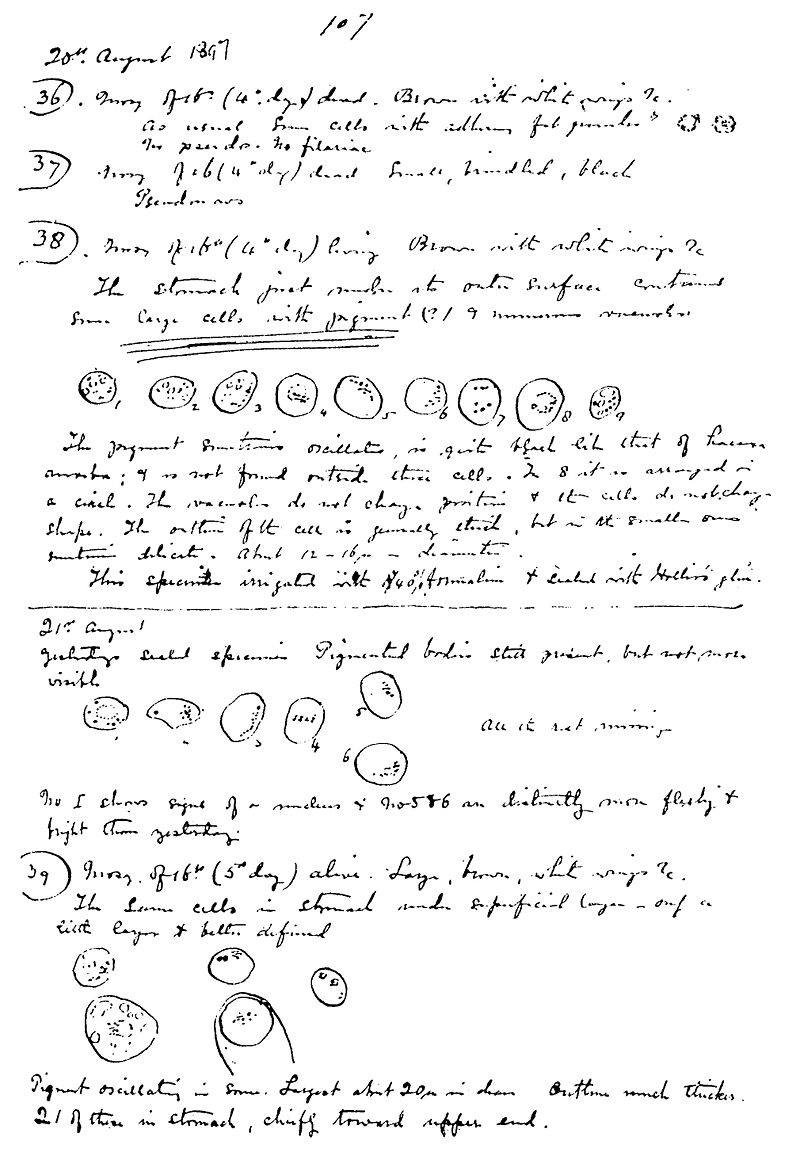 107
20th August 1897
36. Mosq of 16th (4th day) dead. Brown with white wings &c.
As usual some cells with adherent fat granules
No pseudos. No filariae
37 Mosq of 16 (4th day) dead Small, brindled, black
Pseudonavs
38. Mosq of 16th (4th day) living Brown with white wings &c
The stomach just under its outer surface contains
some large cells with pigment (?) & numerous vacuoles
1 2 3 4 5 6 7 8 9
The pigment sometimes oscillates, is quite black like that of
amoeba; & is not found outside these cells. In 8 it is arranged in
a circle. The vacuoles do not change position & the cells do not change
shape. The outline of the cell is generally thick, but in the smaller ones
sometimes delicate. About 12-16µ in diameter.
This specimen irrigated with 40% formalin & sealed with Hollis's glue.
21st August
Yesterdays sealed specimen Pigmented bodies still present, but not more
visible
1 2 3 4 5 6
All the rest missing
No 1 shows signs of a nucleus & No 5 & 6 are distinctly more fleshy &
bright than yesterday.
39 Mosq. of 16th (5th day) alive. Large, brown, white wings &c.
The same cells in stomach under superficial layer - only a
little larger & better defined
Pigment oscillating in some. Largest about 20µ in diam Outline much thicker.
21 of these in stomach, chiefly toward upper end.